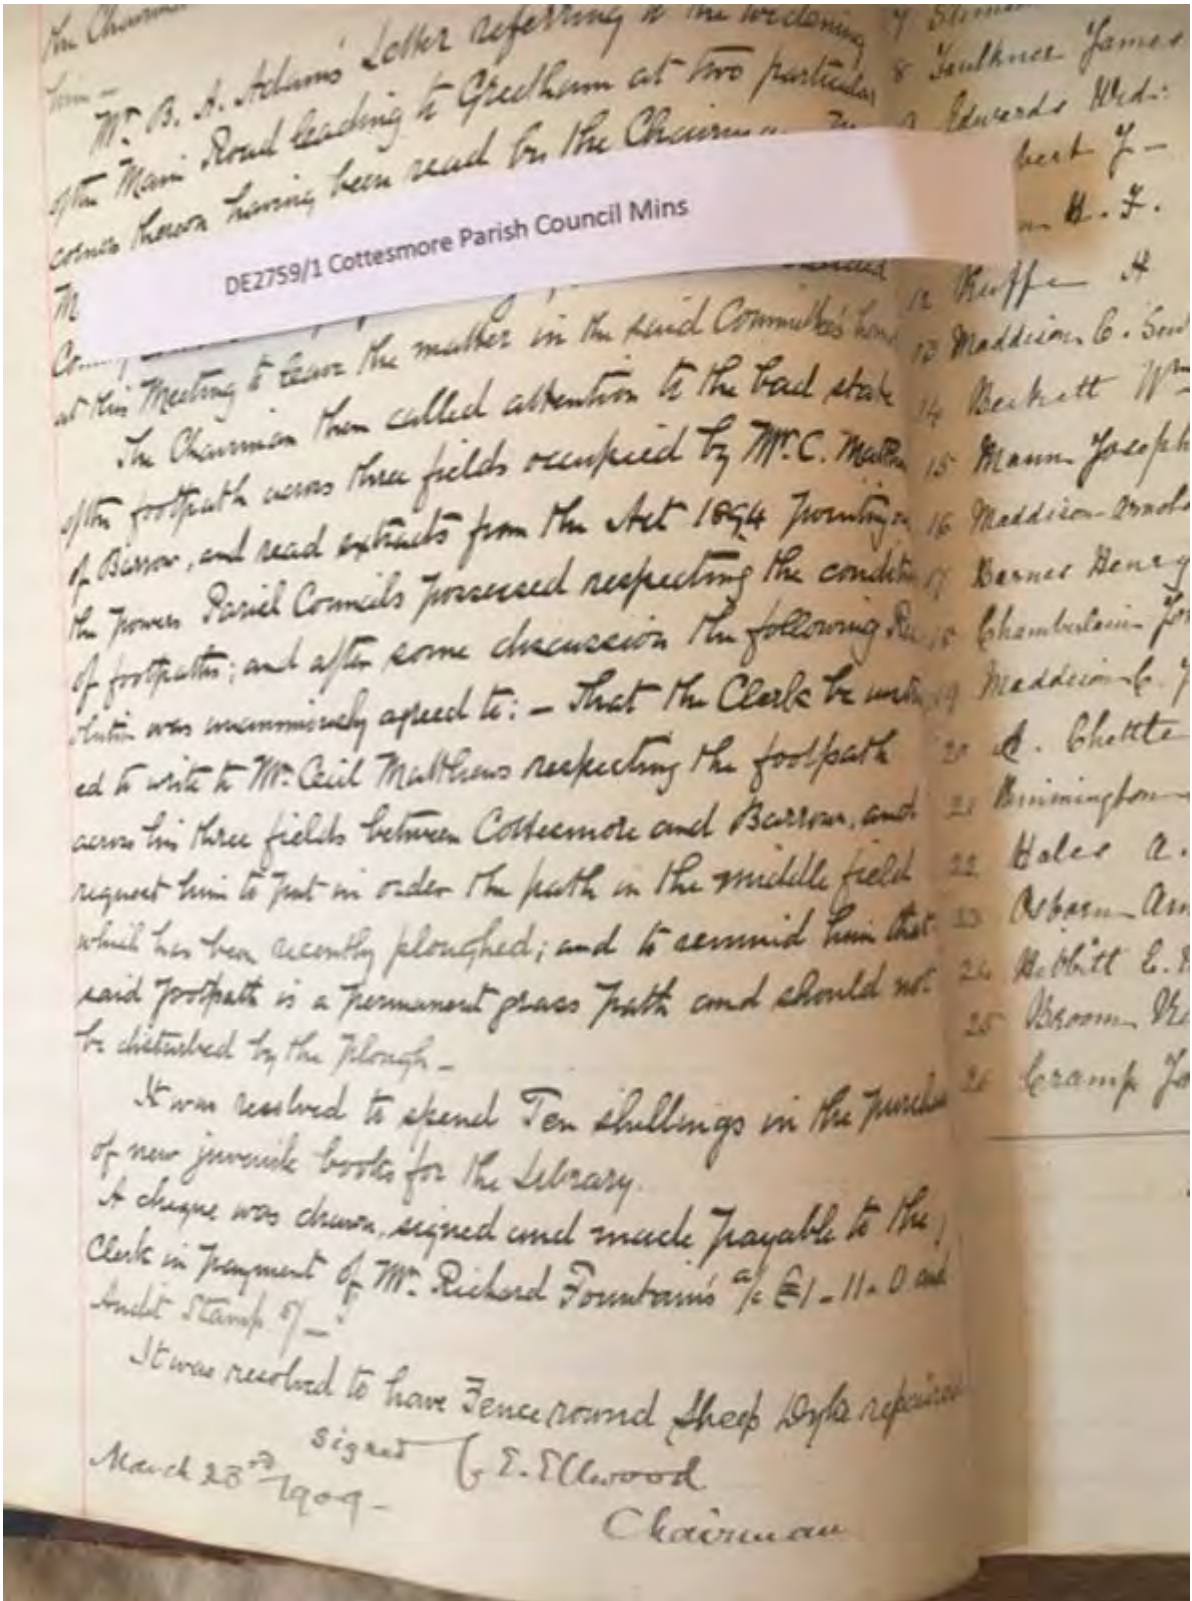 the Chairman
him —
Mr. B. A. Adams' Letter referring to the widening
of the Main Road leading to Greetham at two particular
corners thereon having been read by the Chairman
DE2759/1 Cottesmore Parish Council Mins
M
Co
at this Meeting to leave the matter in the said Committee's hands
The Chairman then called attention to the bad state
of the footpath across three fields occupied by Mr. C. Matth
of Barrow, and read extracts from the Act 1894 pointing
the powers Parish Councils possessed respecting the conditi
of footpaths; and after some discussion the following Res
olution was unanimously agreed to: — That the Clerk be instr
ed to write to Mr. Cecil Matthews respecting the footpath
across his three fields between Cottesmore and Barrow, and
request him to put in order the path in the middle field
which has been recently ploughed; and to remind him that
said footpath is a permanent grass path and should not
be disturbed by the plough —
It was resolved to spend Ten shillings in the purchase
of new juvenile books for the Library.
A cheque was drawn, signed and made payable to the
Clerk in payment of Mr. Richard Fountain's a/c £1-11-0 and
Audit Stamp 5/-
It was resolved to have Fence round Sheep Dyke repaired
signed E. Ellwood
March 23rd 1909 - Chairman
7
8 Faulkner James
9 Edwards Wed:
bert J —
H. F.
12 Ruffe H
13 Maddison C. Sen
14 Beckett Wm
15 Mann Joseph
16 Maddison Arnold
17 Barnes Henry
18 Chamberlain Jo
19 Maddison C. J
20 A. Chettle
21 Binnington
22 Hales A.
23 Osborn Am
24 Hebbitt C.
25 Broom
26 Cramp Jo